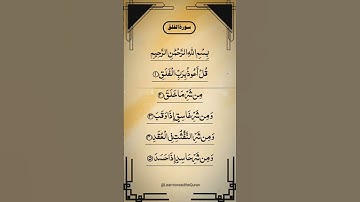 سورة الفلق
بِسْمِ اللهِ الرَّحْمٰنِ الرَّحِيْمِ
قُلْ أَعُوذُ بِرَبِّ الْفَلَقِ ١
مِن شَرِّ مَا خَلَقَ ٢
وَمِن شَرِّ غَاسِقٍ إِذَا وَقَبَ ٣
وَمِن شَرِّ النَّفّٰثٰتِ فِى الْعُقَدِ ٤
وَمِن شَرِّ حَاسِدٍ إِذَا حَسَدَ ٥
@LearntoreadtheQuran